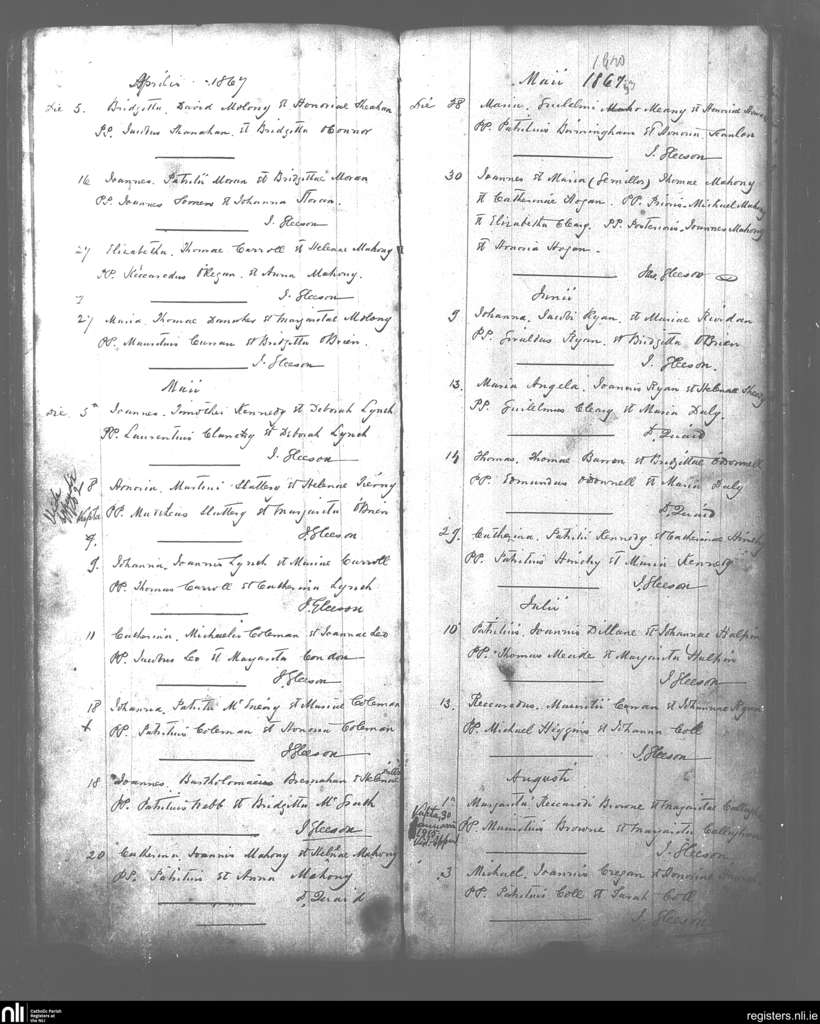 Aprilis 1867
Die 5. Bridgitta, David Molony et Honoriae Sheahan
PP. Jacobus Shanahan et Bridgitta OConnor
16 Joannes. Patritii Moran et Bridgittae Moran
PP. Joannes et Johanna Moran.
J. Gleeson
27 Elizabetha, Thomae Carroll et Helenae Mahony
PP. Riccaredus ORegan. et Anna Mahony.
J. Gleeson
27 Maria. Thomae et Margaritae Molony
PP. Mauritius Curran et Bridgitta OBrien.
J. Gleeson
Maii
Die 5a Joannes. Timothei Kennedy et Deborah Lynch
PP. Laurentius Clanchy et Deborah Lynch
J. Gleeson
8 Honoria, Martini Slattery et Helenae
Nupta PP. Mattheus Slattery et Margarita OBrien
J Gleeson
9. Johanna, Joannis Lynch et Mariae Carroll
PP. Thomas Carroll et Catherina Lynch
J. Gleeson
11 Catherina, Michaelis Coleman et Joannae Leo
PP. Jacobus Leo et Margarita Condon
J. Gleeson
18 Johanna, Patritii et Mariae Coleman
PP. Patritius Coleman et Honoria Coleman
J Gleeson
18 Joannes, Bartholomaeus Bresnahan et
PP. Patritius Webb et Bridgitta McGrath
J Gleeson
20 Catherina, Joannis Mahony et Helenae Mahony
PP. Patritius et Anna Mahony
D. Quaid
Maii 1867
Die 28 Maria, Guilelmi Meany et Honoriae
PP. Patritius Birmingham et Honoria Scanlon
J. Gleeson
30 Joannes et Maria (Gemillos) Thomae Mahony
et Catherinae Hogan. PP. Prioris, Michael Mahony
et Elizabetha Cleary. PP. Posterioris, Joannes Mahony
et Honoria Hogan.
Jas. Gleeson
Junii
9 Johanna, Jacobi Ryan, et Mariae Riordan
PP. Giraldus Ryan, et Bridgitta OBrien
J. Gleeson.
13. Maria Angela, Joannis Ryan et Helenae Sheedy
PP. Guilelmus Cleary et Maria Daly.
D. Quaid
14 Thomas, Thomae Barron et Bridgittae ODonnell
PP. Edmundus ODonnell et Maria Daly
D. Quaid
29. Catherina, Patritii Kennedy et Catherinae
PP. Patritius et Maria Kennedy
J. Gleeson
Julii
10 Patritius, Joannis Dillane et Johannae Halpin
PP. Thomas Meade et Margarita Halpin
J Gleeson
13. Riccaredus, Mauritii Curran et Johannae Ryan
PP. Michael Higgins et Johanna Coll
J. Gleeson
Augusti
1a Margarita, Riccaredi Browne et Margaritae Callaghan
Nupta, 30 PP. Mauritius Browne et Margarita Callaghan
J. Gleeson
3 Michael, Joannis Cregan et Honoriae
PP. Patritius Coll et Sarah Coll
J. Gleeson
nli
Catholic Parish
Registers at
the NLI
registers.nli.ie